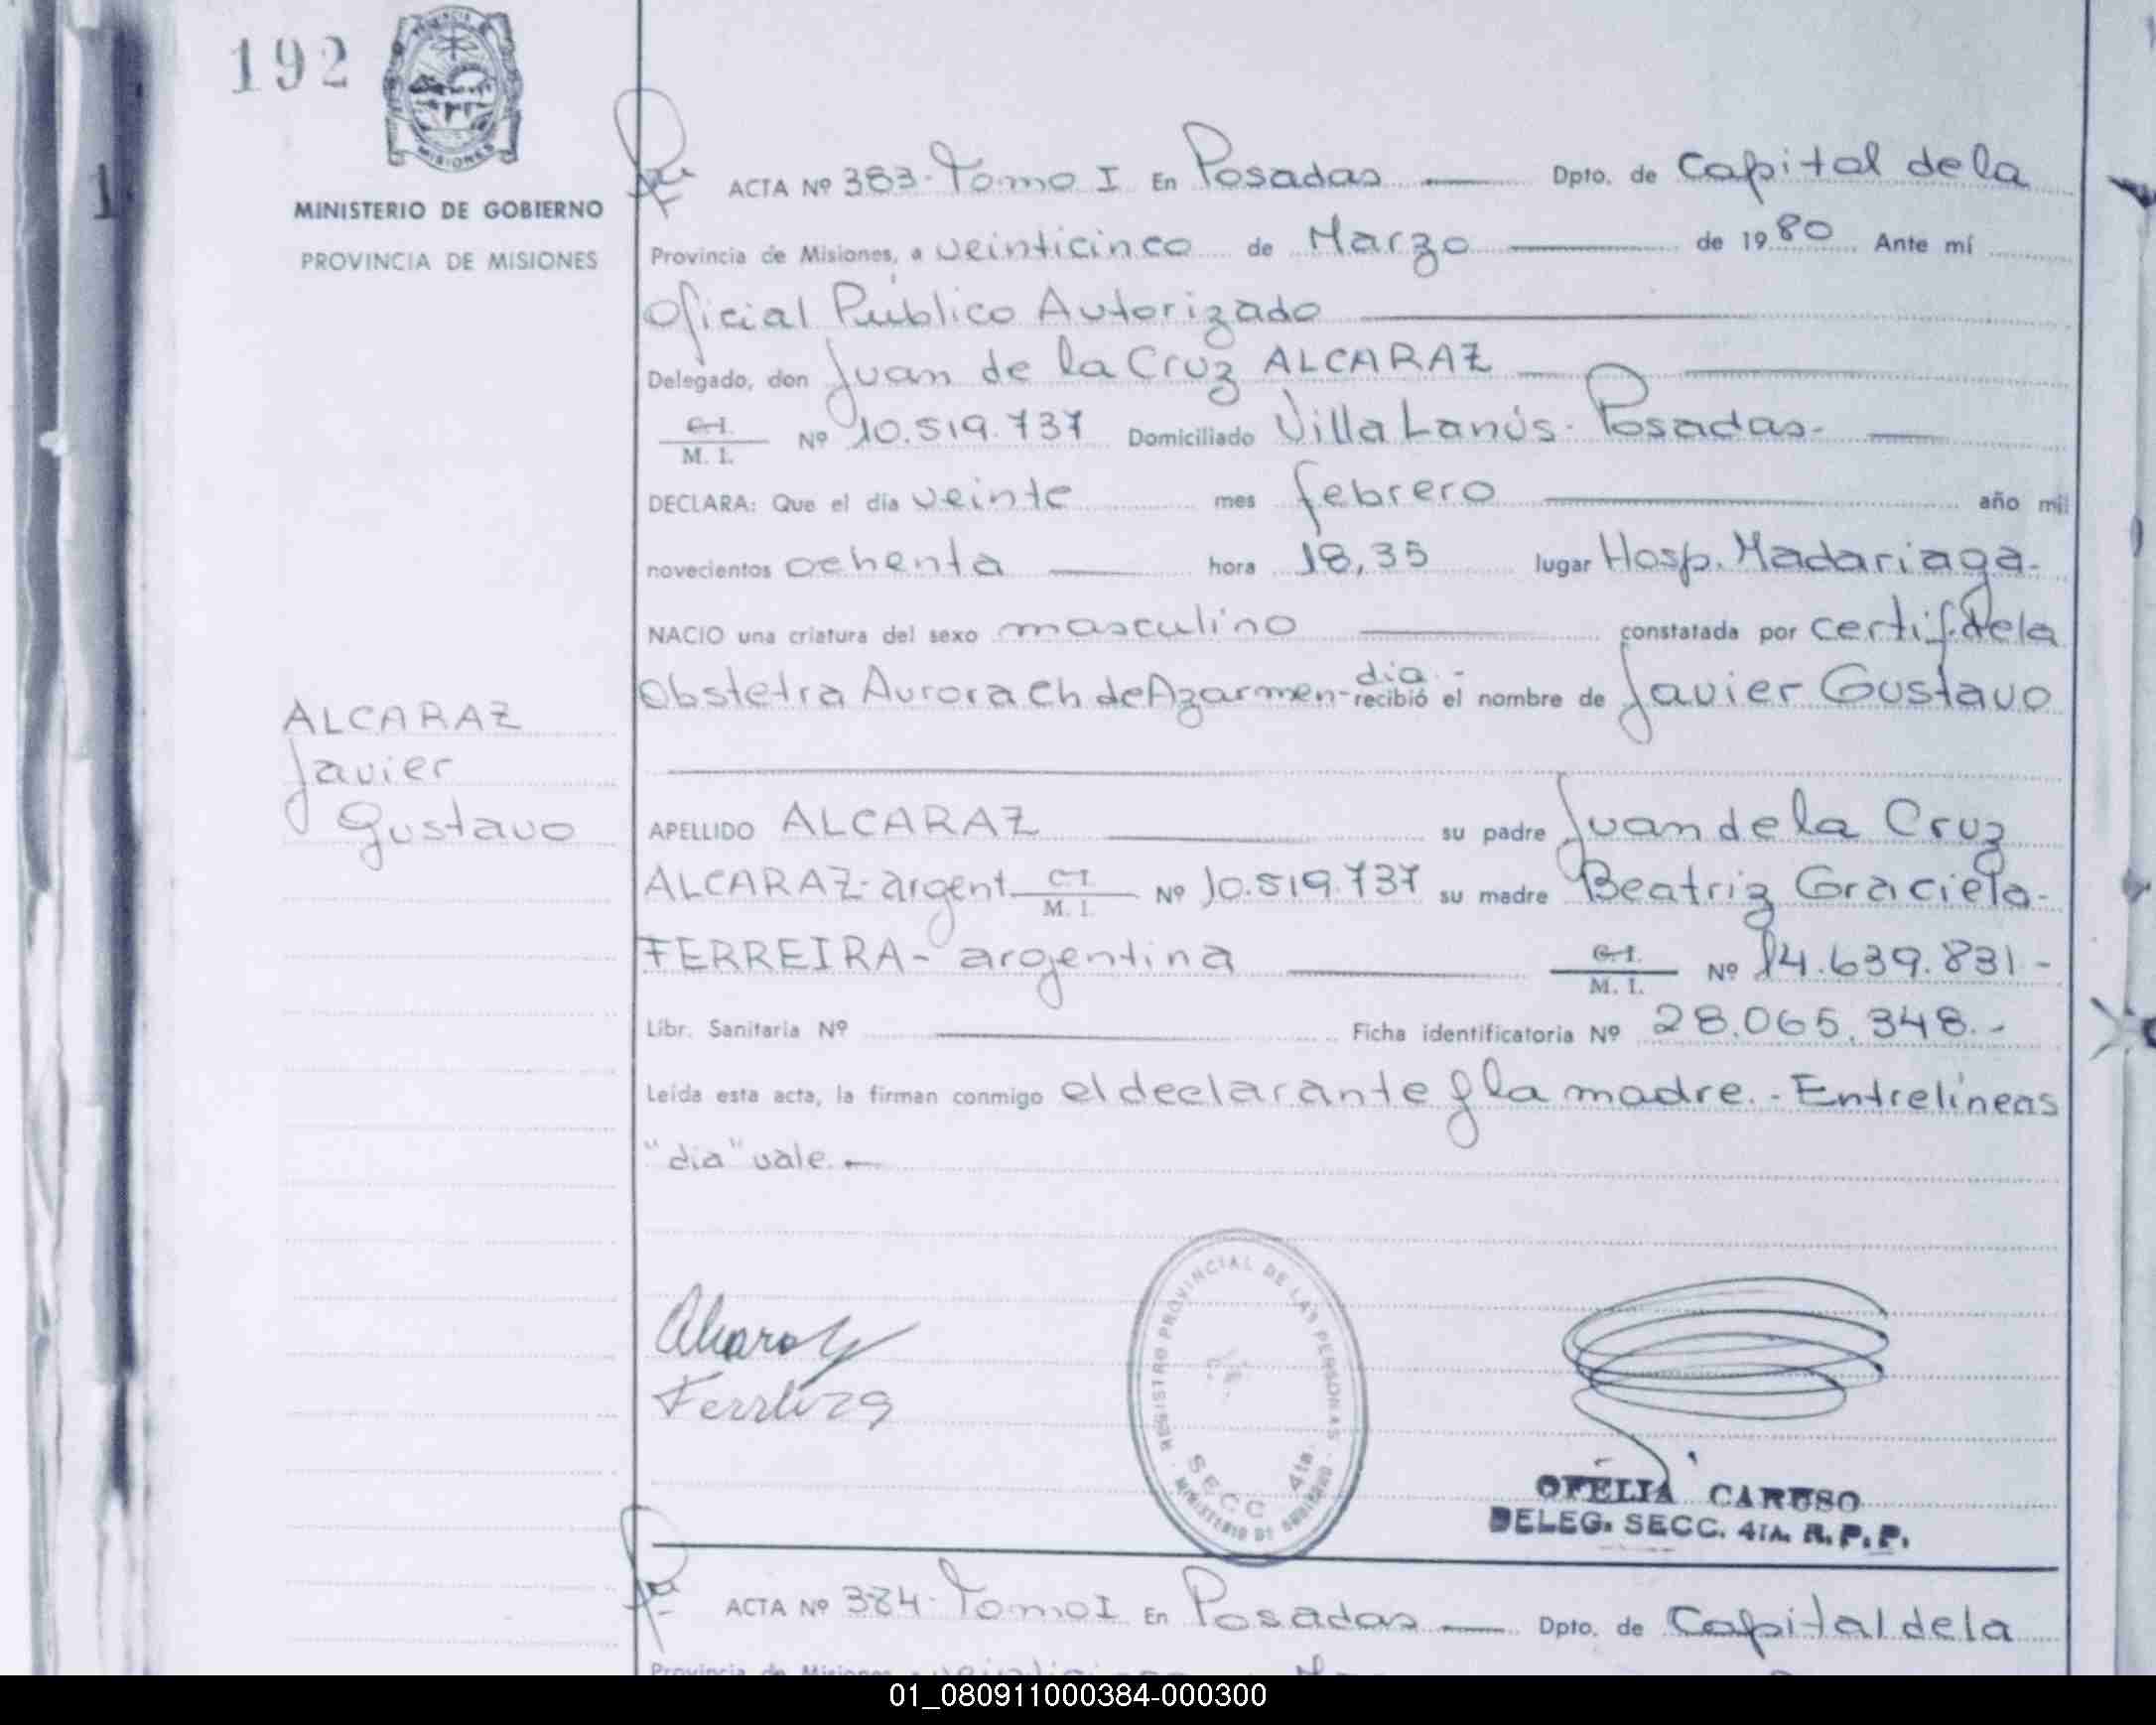 192
PROVINCIA DE
MISIONES
MINISTERIO DE GOBIERNO
PROVINCIA DE MISIONES
1
ACTA Nº 383. Tomo I En Posadas Dpto. de Capital de la
Provincia de Misiones, a veinticinco de Marzo de 1980 Ante mí
Oficial Público Autorizado
Delegado, don Juan de la Cruz ALCARAZ
C.I. M. I. Nº 10.519.737 Domiciliado Villa Lanús. Posadas.-
DECLARA: Que el día veinte mes febrero año mil
novecientos ochenta hora 18,35 lugar Hosp. Madariaga.
NACIO una criatura del sexo masculino constatada por certif. de la
dia.-
Obstetra Aurora Ch de Azarmen- recibió el nombre de Javier Gustavo
ALCARAZ
Javier
Gustavo
APELLIDO ALCARAZ su padre Juan de la Cruz
ALCARAZ- argent. C.I. M. I. Nº 10.519.737 su madre Beatriz Graciela-
FERREIRA- argentina C.I. M. I. Nº 14.639.831-
Libr. Sanitaria Nº Ficha identificatoria Nº 28.065.348.-
Leída esta acta, la firman conmigo el declarante y la madre.- Entrelíneas
"dia" vale.-
Alcaraz
Ferreira
REGISTRO PROVINCIAL DE LAS PERSONAS
SECC 4ta.
MINISTERIO DE GOBIERNO
OFELIA CARUSO
DELEG. SECC. 4TA. R.P.P.
ACTA Nº 384. Tomo I En Posadas Dpto. de Capital de la
Provincia de Misiones
01_080911000384-000300